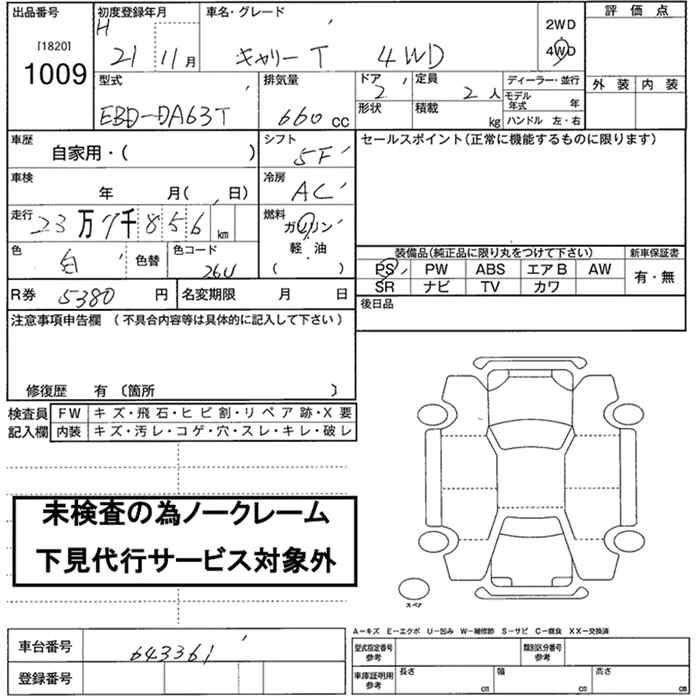 出品番号 初度登録年月 車名・グレード 評価点
[1820] H 2WD
1009 21 11月 キャリーT 4WD 4WD
外装 内装
型式 排気量 ドア 定員 ディーラー・並行
2 2人 モデル年式 年
EBD-DA63T 660cc 形状 積載 kg ハンドル 左・右
車歴 自家用・( ) シフト 5F セールスポイント(正常に機能するものに限ります)
車検 年 月( 日) 冷房 AC
走行 23万7千856km 燃料 ガソリン
軽・油
( )
色 白 色替 色コード 26U
装備品(純正品に限り丸をつけて下さい) 新車保証書
PS PW ABS エアB AW 有・無
SR ナビ TV カワ
R券 5380円 名変期限 月 日
後日品
注意事項申告欄(不具合内容等は具体的に記入して下さい)
修復歴 有〔箇所 〕
検査員 FW キズ・飛石・ヒビ割・リペア跡・X要
記入欄 内装 キズ・汚レ・コゲ・穴・スレ・キレ・破レ
未検査の為ノークレーム
下見代行サービス対象外
スペア
A-キズ E-エクボ U-凹み W-補修跡 S-サビ C-腐食 XX-交換済
車台番号 643361
型式指定番号 参考 類別区分番号 参考
登録番号
車庫証明用 参考 長さ cm 幅 cm 高さ cm